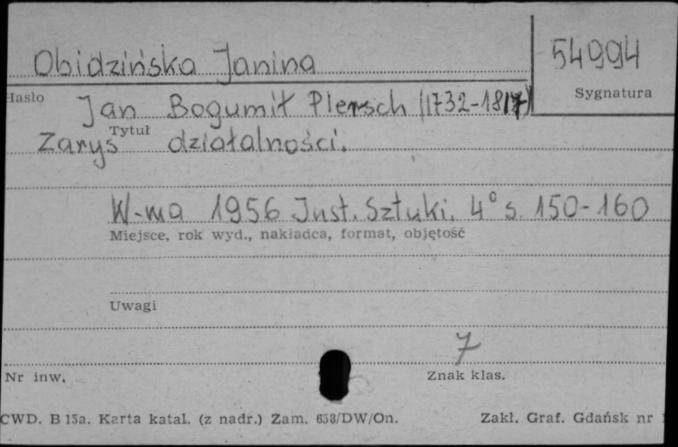 Obidzińska Janina
54994
Hasło
Sygnatura
Jan Bogumił Plersch (1732-1817)
Tytuł
Zarys działalności.
W-wa 1956 Inst. Sztuki. 4° s. 150-160
Miejsce, rok wyd., nakładca, format, objętość
Uwagi
7
Nr inw.
Znak klas.
CWD. B 15a. Karta katal. (z nadr.) Zam. 658/DW/On.
Zakł. Graf. Gdańsk nr